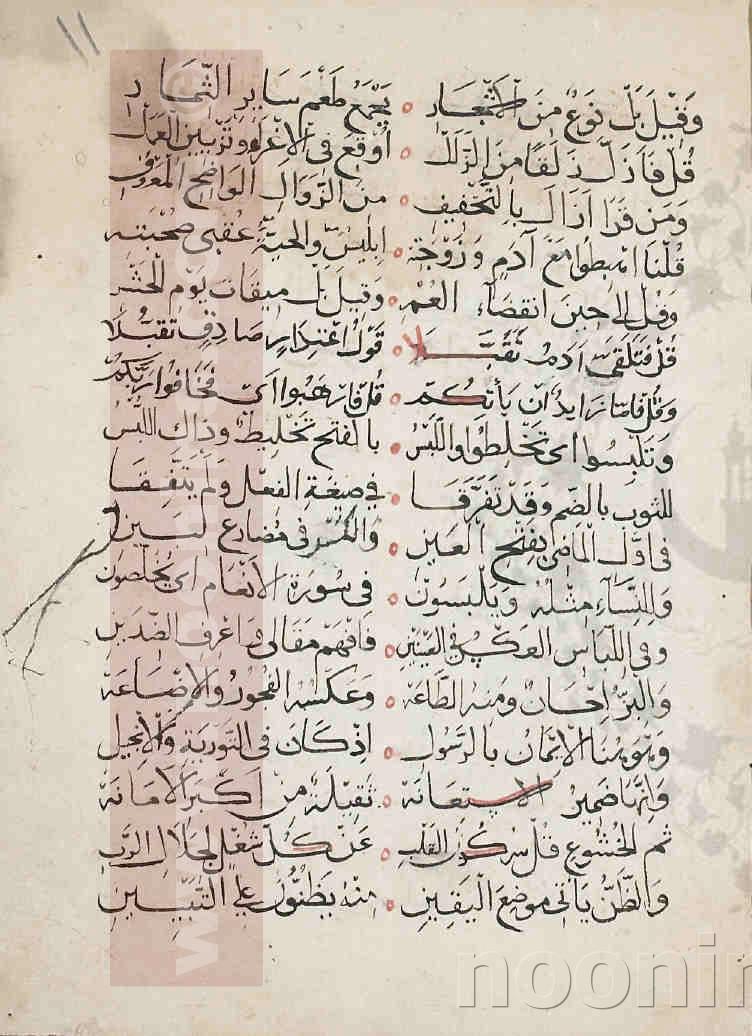 ١١
وَقِيلَ بَلْ نَوْعٌ مِنَ الْأَشْجَارِ ۰ يَجْمَعُ طَعْمَ سَايِرِ الثِّمَارِ
قُلْ فَازَلَّ زَلَقًا مِنَ الزَّلَلْ ۰ أَوْقَعَ فِي الْإِغْرَاءِ وَتَزْيِينِ الْعَمَلْ
وَمَن قَرَا ازَالَ بِالتَّخْفِيفِ ۰ مِنَ الزَّوَالِ الْوَاضِحِ الْمَعْرُوفِ
قُلْنَا اهْبِطُوا مَعَ آدَمٍ وَزَوْجَتِهْ ۰ اِبْلِيسُ وَالْحَيَّةُ عُقْبَى صُحْبَتِهْ
وَقُلْ إلى حِينَ انْقِضَآءِ الْعُمْرِ ۰ وَقِيلَ بَلْ مِيقَاتُ يَوْمِ الْحَشْرِ
قُلْ فَتَلَقَّى آدَمُ تَقَبَّلَا ۰ قَوْلَ اعْتِذَارٍ صَادِفٍ تَقَبُّلَا
وَقُلْ فَامَّا زَايِدٌ انْ يَأْتِكُمْ ۰ قُلْ فَارْهَبُوا اىْ فَخَافُوا رَبَّكُمْ
وَتَلْبِسُوا اى تَخْلِطُوا وَاللَّبْسُ ۰ بالفتح تَخْلِيطٌ وَذَاكَ اللُّبْسُ
للثوب بالضم وَقَدْ تَفَرَّقَا ۰ فِي صِيغَةِ الْفِعْلِ وَلَمْ يَتَّفِقَا
فى اوَّلِ الْمَاضِى بِفَتْحِ الْعَيْنِ ۰ وَالْكَسْرِ فى مُضَارِعٍ لِبَيْنِ
وَلِلنِّسَآءِ مِثْلُهُ وَيَلْبِسُونْ ۰ فِى سُورَةِ الْأَنْعَامِ اى يُخَلِّطُونْ
وَفِى اللِّبَاسِ الْعَكْسُ فِي الْعَيْنَيْنِ ۰ فَافْهَمْ مَقَالِى وَاعْرِفِ الضِّدَّيْنِ
وَالْبِرُّ اِحْسَانٌ وَمِنْهُ الطَّاعَهْ ۰ وَعَكْسُهُ الْفُجُورُ وَالْإِضَاعَهْ
وَهْوَ هُنَا الْإِيمَانُ بِالرَّسُولِ ۰ اِذْ كَانَ فِى التَّوْرَيةِ وَالْإِنْجِيلِ
وَاِنَّهَا ضَمِيرُ الْاِسْتِعَانَهْ ۰ ثَقِيلَةٌ مِنْ أَكْبَرِ الْأَمَانَهْ
ثم الْخُشُوعِ قُلْ سُكُونُ الْقَلْبِ ۰ عَنْ كُلِّ شُغْلٍ لِجَلَالِ الرَّبِّ
وَالظَّنُّ يَاتِى مَوْضِعَ الْيَقِينِ ۰ مِنْهُ يَظُنُّونَ عَلَى التَّبْيِينِ
noonin